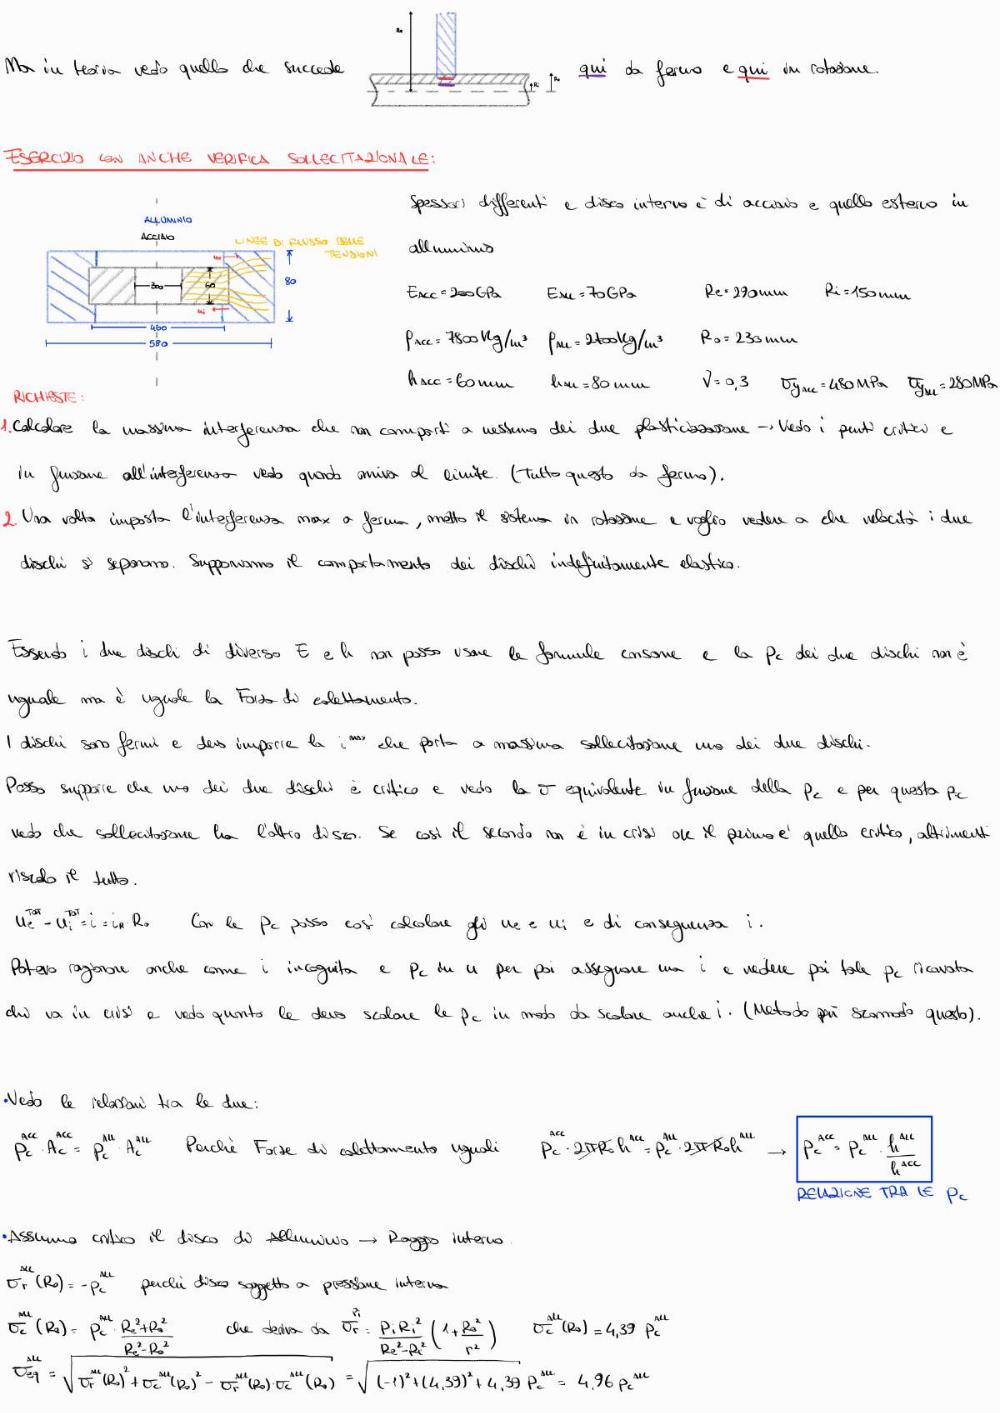 Ma in teoria vedo quello che succede qui da fermo e qui in rotazione.
Re
Ri
Ro
ESERCIZIO CON ANCHE VERIFICA SOLLECITAZIONALE:
ALLUMINIO
ACCIAIO
LINEE DI FLUSSO DELLE
TENSIONI
300
60
80
ui
460
580
Spessori differenti e disco interno è di acciaio e quello esterno in
alluminio
E_ACC = 200GPa E_ALL = 70GPa Re = 290mm Ri = 150mm
ρ_ACC = 7800 Kg/m³ ρ_ALL = 2700 Kg/m³ Ro = 230mm
h_ACC = 60mm h_ALL = 80mm ν = 0,3 σy_ACC = 480MPa σy_ALL = 280MPa
RICHIESTE:
1. Calcolare la massima interferenza che non comporti a nessuno dei due plasticizzazione → Vedo i punti critici e
in funzione all'interferenza vedo quando arriva al limite. (Tutto questo da fermo).
2. Una volta imposta l'interferenza max a fermo, metto il sistema in rotazione e voglio vedere a che velocità i due
dischi si separano. Supponiamo il comportamento dei dischi indefinitamente elastico.
Essendo i due dischi di diverso E e h non posso usare le formule consone e la Pc dei due dischi non è
uguale ma è uguale la Forza di calettamento.
I dischi sono fermi e devo imporre la i^max che porta a massima sollecitazione uno dei due dischi.
Posso supporre che uno dei due dischi è critico e vedo la σ equivalente in funzione della Pc e per questa Pc
vedo che sollecitazione ha l'altro disco. Se così il secondo non è in crisi ok il primo è quello critico, altrimenti
risolvo il tutto.
ue^TOT - ui^TOT = i = i_R Ro Con le Pc posso così calcolare gli ue e ui e di conseguenza i.
Potevo ragionare anche come i incognita e Pc in u per poi assegnare una i e vedere poi tale Pc ricavata
chi va in crisi e vedo quanto le devo scalare le Pc in modo da scalare anche i. (Metodo più scomodo questo).
• Vedo le relazioni tra le due:
Pc^ACC · Ac^ACC = Pc^ALL · Ac^ALL Perchè Forze di calettamento uguali Pc^ACC · 2πRo h^ACC = Pc^ALL · 2πRo h^ALL → Pc^ACC = Pc^ALL · h^ALL / h^ACC
RELAZIONE TRA LE Pc
• Assumo critico il disco di Alluminio → Raggio interno.
σr^ALL (Ro) = -Pc^ALL perchè disco soggetto a pressione interna
σc^ALL (Ro) = Pc^ALL · (Re² + Ro²) / (Re² - Ro²) che deriva da σr^Pi = (Pi Ri²) / (Re² - Ri²) (1 + Ro² / r²) σc^ALL (Ro) = 4,39 Pc^ALL
σeq^ALL = √(σr^ALL (Ro)² + σc^ALL (Ro)² - σr^ALL (Ro) · σc^ALL (Ro)) = √((-1)² + (4,39)² + 4,39) Pc^ALL = 4,96 Pc^ALL